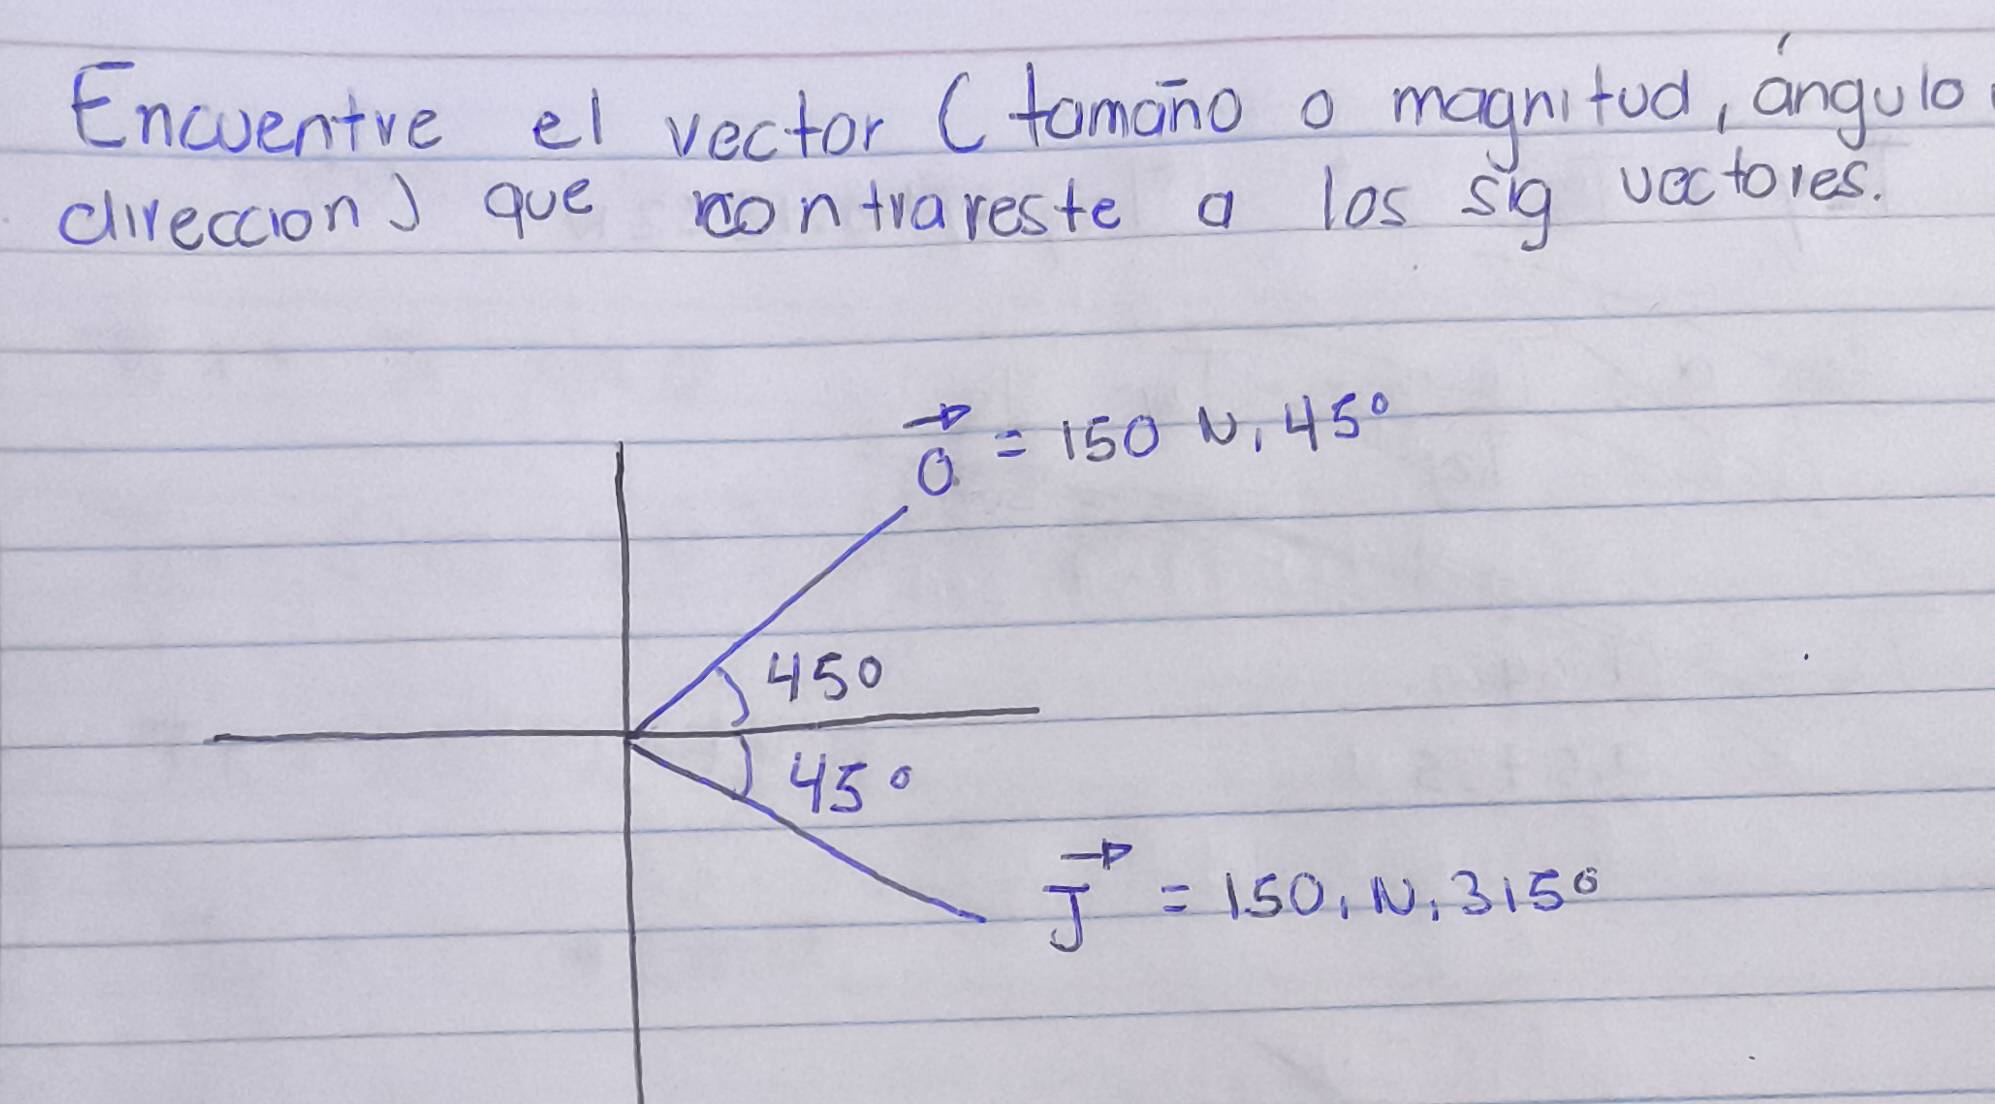 Encuentre el vector (tamaño o magnitud, ángulo
direccion) que contrareste a los sig vectores.
O = 150 N, 45°
45°
45°
J = 150, N, 315°